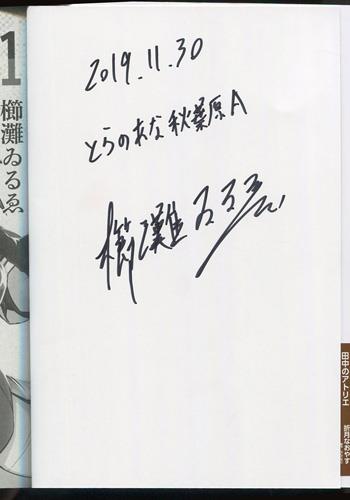 2019.11.30
とらのあな秋葉原A
櫛灘ゐるゑ
1
櫛灘ゐるゑ
田中のアトリエ
折月なおやす